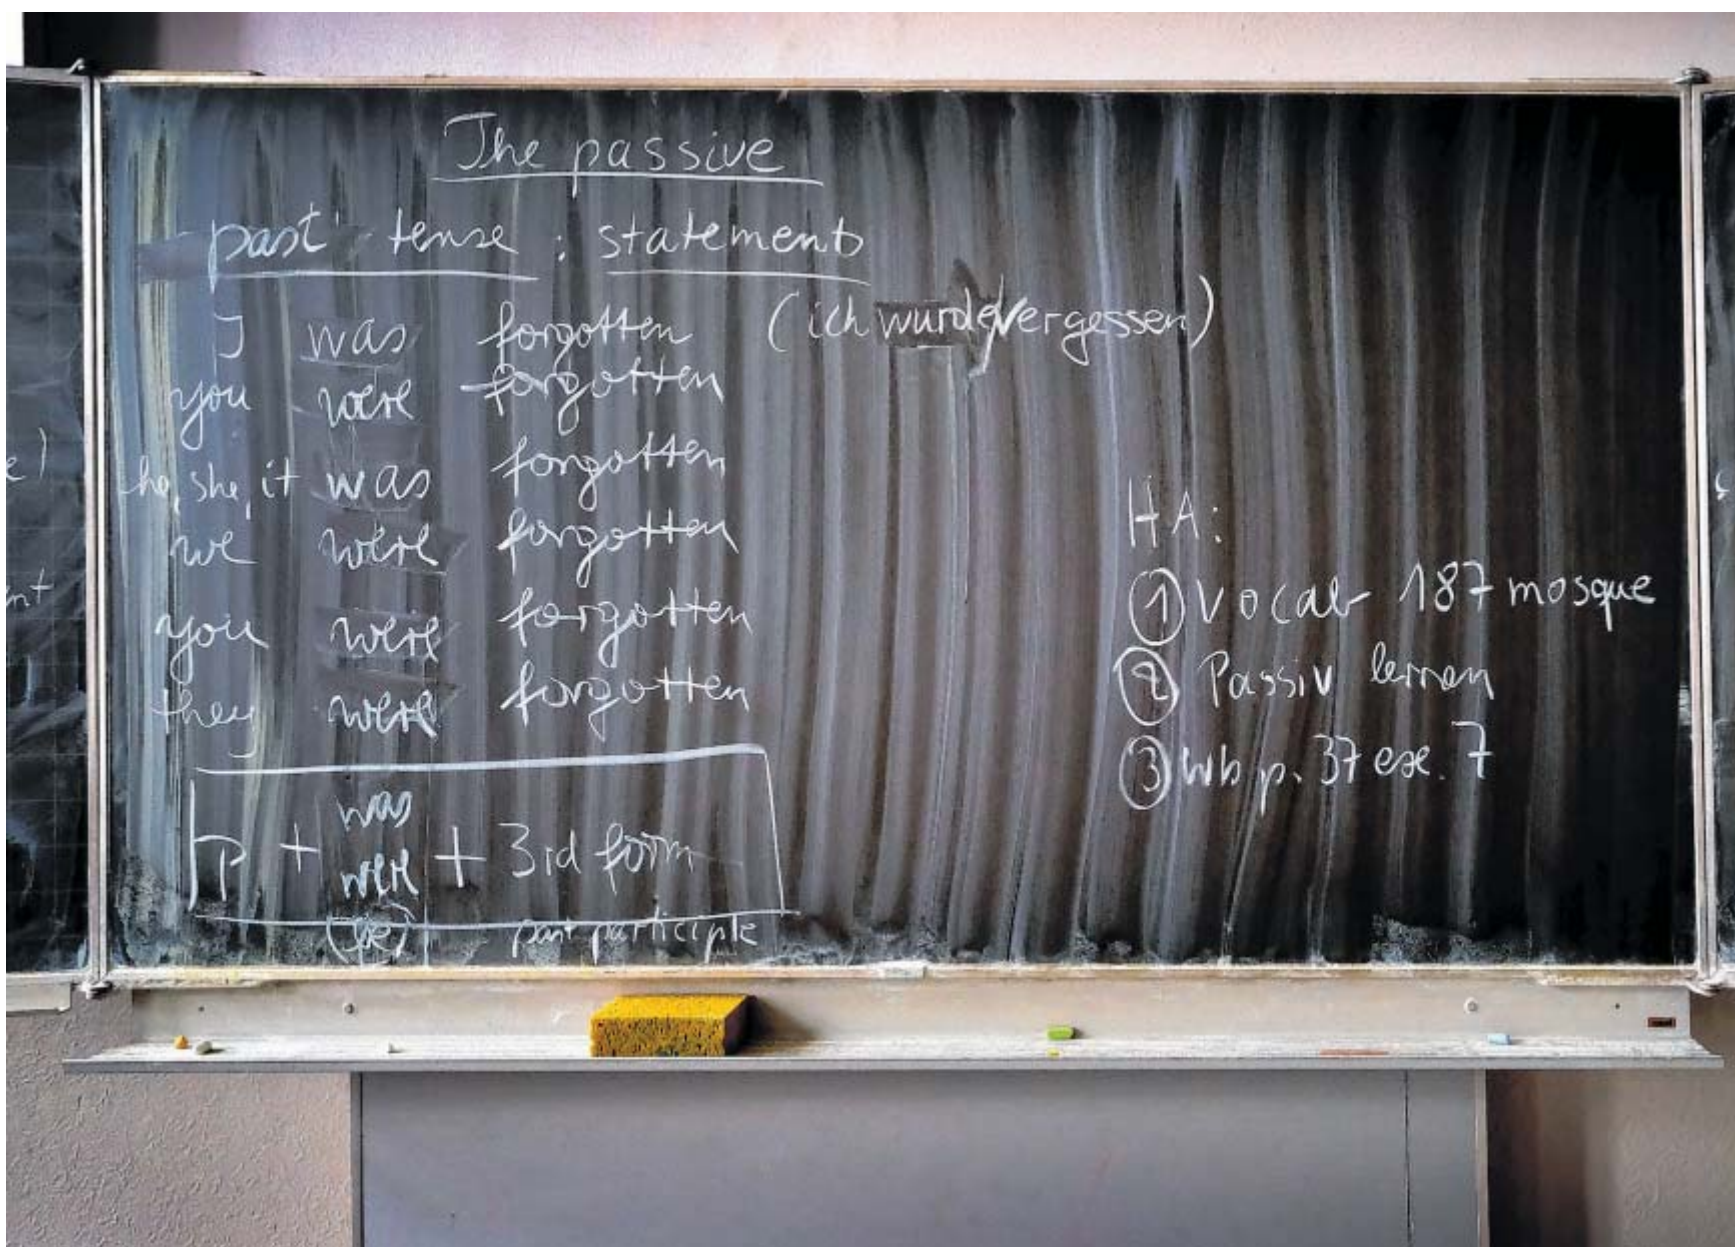 The passive
past tense : statements
I was forgotten (ich wurde vergessen)
you were forgotten
he, she, it was forgotten
we were forgotten
you were forgotten
they were forgotten
was
P + were + 3rd form
past participle
HA:
① Vocab 187 mosque
② Passiv lernen
③ Wb p. 37 exe. 7